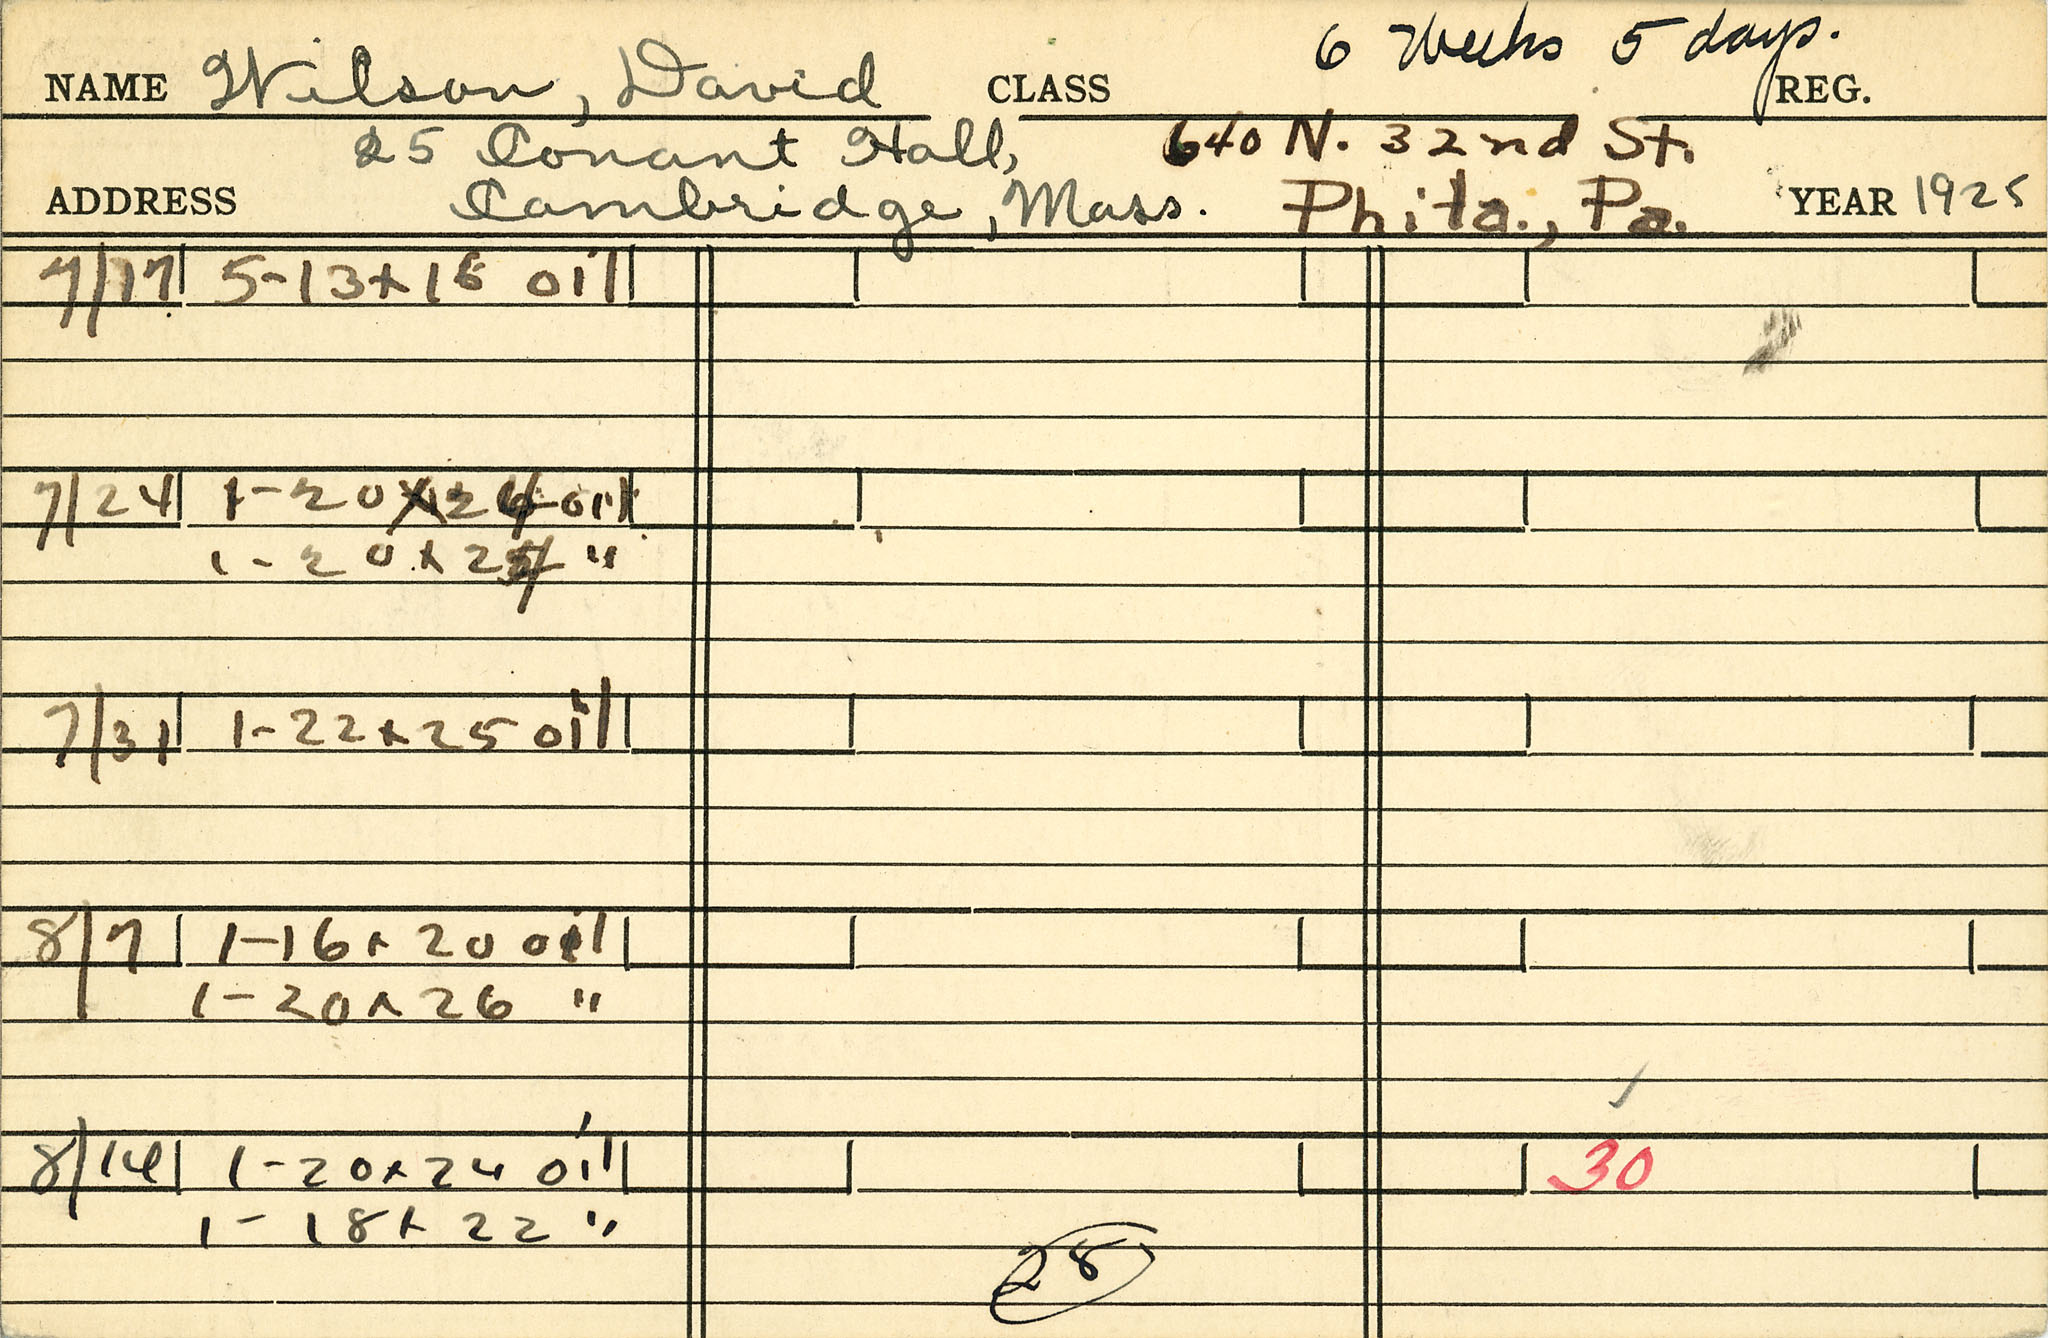 6 Weeks 5 days.
NAME Wilson, David CLASS REG.
25 Conant Hall, 640 N. 32nd St.
ADDRESS Cambridge, Mass. Phila., Pa. YEAR 1925
7/17 5-13x16 oil
7/24 1-20x24 oil
1-20x24 "
7/31 1-22x25 oil
8/7 1-16x20 oil
1-20x26 "
8/14 1-20x24 oil 30
1-18x22 "
28